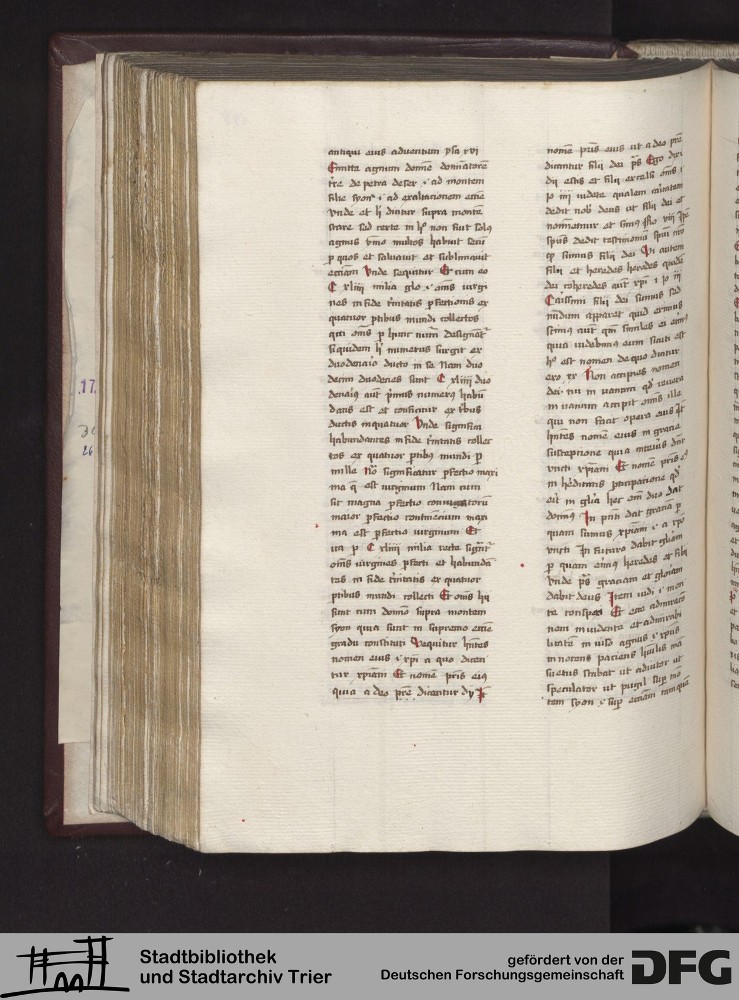 antiqui eius aduentum ysa xvi
Emitte agnum domine dominatorē
t̄re de petra deser · ad montem
filie syon · ad exaltacionem ecc̄e
vnde et hī dicitur supra monte
stare sed certe in h° non stat sol9
agnus ymo multos habuit secū
p quos et saluauit et sublimauit
ecc̄iam Vnde sequitur Et cum eo
C xliiii milia glo · om̄s uirgi
nes in fide t̄nitatis ꝑfectionis ex
quatuor ꝑtibus mundi collectos
qui om̄s ꝑ hunc num̄ designāt̄
Siquidem hī numerus surgit ex
duodenaīo ducto in se Nam duo
decim duodecies sunt C xliiii duo
denaīus aūt ꝑimus numerꝯ habū
dans est et conficitur ex t̄bus
ductis in quatuor Vnde signifi
habundantes in fide t̄nitatis collec
tos ex quatuor ꝑtibꝯ mundi ꝑ
mille n° significatur ꝑfectio maxi
ma q̄ est uirginum Nam cum
sit magna ꝑfectio coniugatorū
maior ꝑfectio continencium maxi
ma est ꝑfectio uirginum Et
ita ꝑ C xliiii milia recte signāt̄
om̄s uirgines ꝑfecti et habundā
tes in fide t̄nitatis ex quatuor
ꝑtibus mundi collecti Et om̄s hij
sunt cum domīo supra montem
syon quia sunt in supremo ecc̄e
gradu constituti Sequitur hn̄tes
nomen eius · xpī a quo dicen
tur xp̄iani Et nomē pr̄is eiꝯ
quia a deo pr̄e dicentur dij
nomē pr̄is eius ut a deo pr̄e
dicantur filij dei p̄s Ego dixi
dij estis et filij excelsi om̄s
Jo iii uidete qualem caritatem
dedit nob̄ deus ut filij dei et
nominemur et simꝯ Ro viii Ip̄e
sp̄us dedit testimoniū sp̄ui nr̄o
qꝫ simus filij dei Si autem
filij et heredes heredes quidē
dei coheredes aūt xpī Jo iii
Carissimi filij dei sumus sed
nūdum apparet quid erimus
scimꝯ aūt qm̄ similes ei erimꝯ
quia uidebimꝯ eum sicuti est
h° est nomen de quo dicitur
exo xx Non accipies nomen
dei tui in uanum qd̄ reuera
in uanum accipit om̄s ille
qui non facit opera eius q̄t
hn̄tes nomē eius in gracie
susceptione quia interius sūt
vncti xp̄iani Et nomē pr̄is eiꝯ
in hēditatis ꝑticipatione qd̄
erit in gl̄ia hec em̄ duo dat
domꝯ In pn̄ti dat graciā ꝑ
quam sumus xp̄iani · a xpo
vncti In futuro dabit gloriam
ꝑ quam erimꝯ heredes et filij
Vnde p̄s graciam et gloriam
dabit deus Item uidi · in mon
te conspexi Et ecce admiracō
nem inuidente et admirabi
litatē in uiso agnus · xp̄us
innocens paciens humilis man
suetus stabat ut adiutor ut
speculator ut pugil sup̄ mō
tem syon · sup̄ ecc̄iam tamquā
.17.
26
Stadtbibliothek
und Stadtarchiv Trier
gefördert von der
Deutschen Forschungsgemeinschaft
DFG